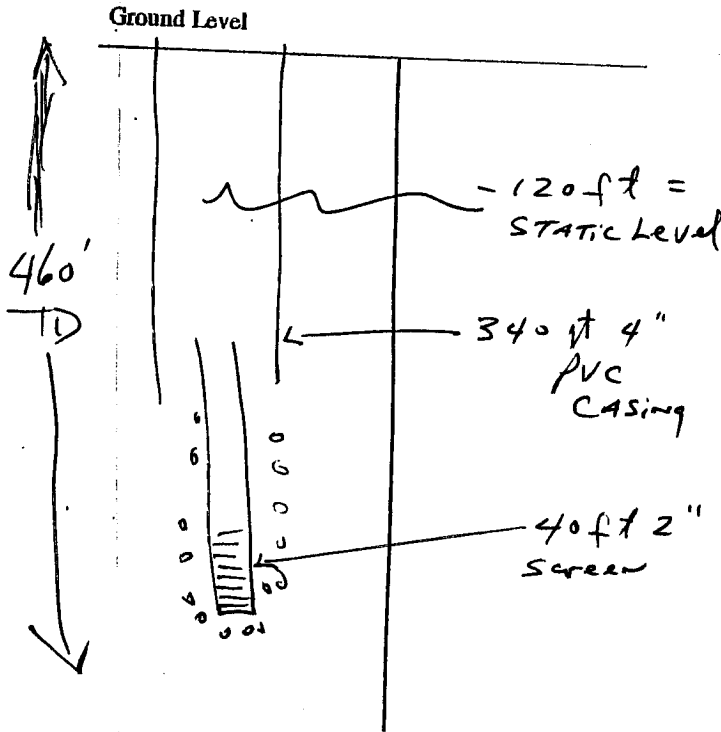 Ground Level
- 120 ft =
STATIC Level
460'
TD
340 ft 4"
PVC
CASING
40 ft 2"
Screen